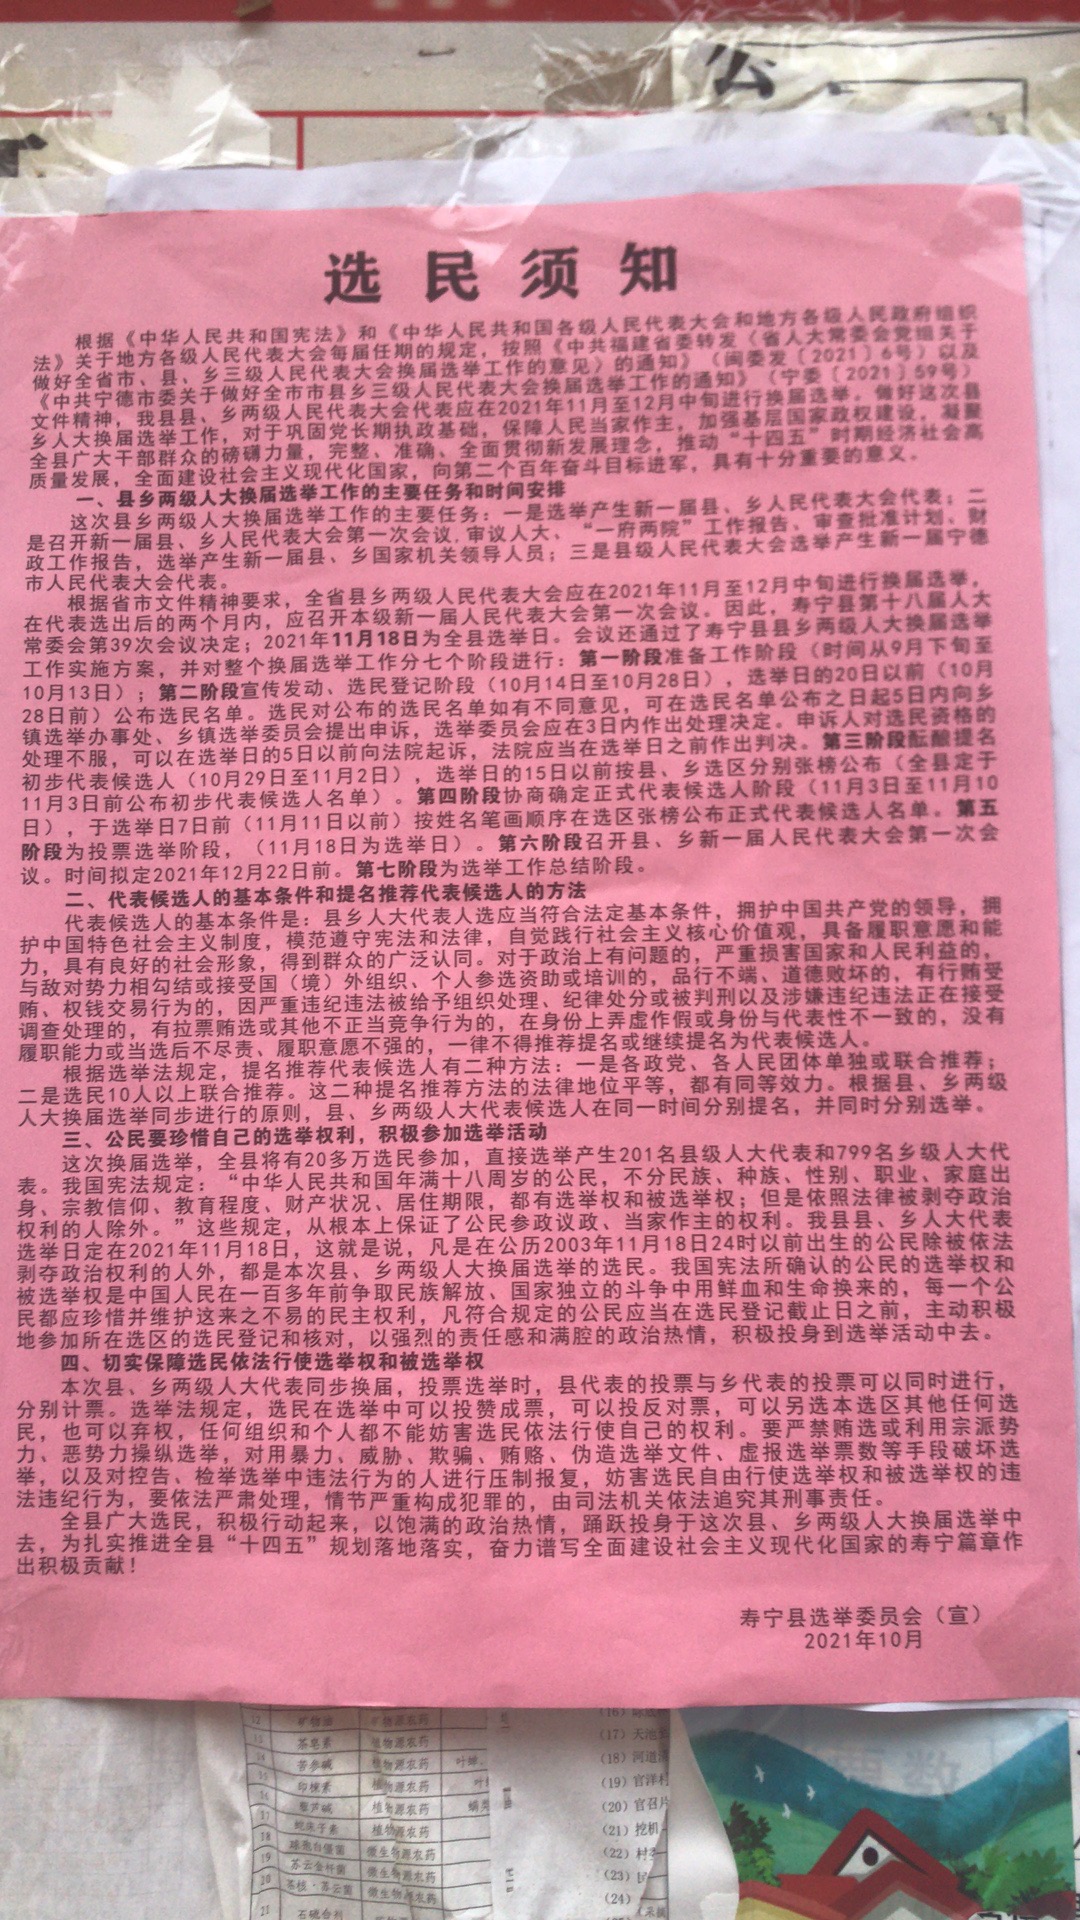 公
选民须知
根据《中华人民共和国宪法》和《中华人民共和国各级人民代表大会和地方各级人民政府组织
法》关于地方各级人民代表大会每届任期的规定，按照《中共福建省委转发〈省人大常委会党组关于
做好全省市、县、乡三级人民代表大会换届选举工作的意见〉的通知》（闽委发〔2021〕6号）以及
《中共宁德市委关于做好全市市县乡三级人民代表大会换届选举工作的通知》（宁委〔2021〕59号）
文件精神，我县县、乡两级人民代表大会代表应在2021年11月至12月中旬进行换届选举。做好这次县
乡人大换届选举工作，对于巩固党长期执政基础，保障人民当家作主，加强基层国家政权建设，凝聚
全县广大干部群众的磅礴力量，完整、准确、全面贯彻新发展理念，推动“十四五”时期经济社会高
质量发展，全面建设社会主义现代化国家，向第二个百年奋斗目标进军，具有十分重要的意义。
一、县乡两级人大换届选举工作的主要任务和时间安排
这次县乡两级人大换届选举工作的主要任务：一是选举产生新一届县、乡人民代表大会代表；二
是召开新一届县、乡人民代表大会第一次会议，审议人大、“一府两院”工作报告、审查批准计划、财
政工作报告，选举产生新一届县、乡国家机关领导人员；三是县级人民代表大会选举产生新一届宁德
市人民代表大会代表。
根据省市文件精神要求，全省县乡两级人民代表大会应在2021年11月至12月中旬进行换届选举，
在代表选出后的两个月内，应召开本级新一届人民代表大会第一次会议。因此，寿宁县第十八届人大
常委会第39次会议决定；2021年11月18日为全县选举日。会议还通过了寿宁县县乡两级人大换届选举
工作实施方案，并对整个换届选举工作分七个阶段进行：第一阶段准备工作阶段（时间从9月下旬至
10月13日）；第二阶段宣传发动、选民登记阶段（10月14日至10月28日），选举日的20日以前（10月
28日前）公布选民名单。选民对公布的选民名单如有不同意见，可在选民名单公布之日起5日内向乡
镇选举办事处、乡镇选举委员会提出申诉，选举委员会应在3日内作出处理决定。申诉人对选民资格的
处理不服，可以在选举日的5日以前向法院起诉，法院应当在选举日之前作出判决。第三阶段酝酿提名
初步代表候选人（10月29日至11月2日），选举日的15日以前按县、乡选区分别张榜公布（全县定于
11月3日前公布初步代表候选人名单）。第四阶段协商确定正式代表候选人阶段（11月3日至11月10
日），于选举日7日前（11月11日以前）按姓名笔画顺序在选区张榜公布正式代表候选人名单。第五
阶段为投票选举阶段，（11月18日为选举日）。第六阶段召开县、乡新一届人民代表大会第一次会
议。时间拟定2021年12月22日前。第七阶段为选举工作总结阶段。
二、代表候选人的基本条件和提名推荐代表候选人的方法
代表候选人的基本条件是：县乡人大代表人选应当符合法定基本条件，拥护中国共产党的领导，拥
护中国特色社会主义制度，模范遵守宪法和法律，自觉践行社会主义核心价值观，具备履职意愿和能
力，具有良好的社会形象，得到群众的广泛认同。对于政治上有问题的，严重损害国家和人民利益的，
与敌对势力相勾结或接受国（境）外组织、个人参选资助或培训的，品行不端、道德败坏的，有行贿受
贿、权钱交易行为的，因严重违纪违法被给予组织处理、纪律处分或被判刑以及涉嫌违纪违法正在接受
调查处理的，有拉票贿选或其他不正当竞争行为的，在身份上弄虚作假或身份与代表性不一致的，没有
履职能力或当选后不尽责、履职意愿不强的，一律不得推荐提名或继续提名为代表候选人。
根据选举法规定，提名推荐代表候选人有二种方法：一是各政党、各人民团体单独或联合推荐；
二是选民10人以上联合推荐。这二种提名推荐方法的法律地位平等，都有同等效力。根据县、乡两级
人大换届选举同步进行的原则，县、乡两级人大代表候选人在同一时间分别提名，并同时分别选举。
三、公民要珍惜自己的选举权利，积极参加选举活动
这次换届选举，全县将有20多万选民参加，直接选举产生201名县级人大代表和799名乡级人大代
表。我国宪法规定：“中华人民共和国年满十八周岁的公民，不分民族、种族、性别、职业、家庭出
身、宗教信仰、教育程度、财产状况、居住期限，都有选举权和被选举权；但是依照法律被剥夺政治
权利的人除外。”这些规定，从根本上保证了公民参政议政、当家作主的权利。我县县、乡人大代表
选举日定在2021年11月18日，这就是说，凡是在公历2003年11月18日24时以前出生的公民除被依法
剥夺政治权利的人外，都是本次县、乡两级人大换届选举的选民。我国宪法所确认的公民的选举权和
被选举权是中国人民在一百多年前争取民族解放、国家独立的斗争中用鲜血和生命换来的，每一个公
民都应珍惜并维护这来之不易的民主权利，凡符合规定的公民应当在选民登记截止日之前，主动积极
地参加所在选区的选民登记和核对，以强烈的责任感和满腔的政治热情，积极投身到选举活动中去。
四、切实保障选民依法行使选举权和被选举权
本次县、乡两级人大代表同步换届，投票选举时，县代表的投票与乡代表的投票可以同时进行，
分别计票。选举法规定，选民在选举中可以投赞成票，可以投反对票，可以另选本选区其他任何选
民，也可以弃权，任何组织和个人都不能妨害选民依法行使自己的权利。要严禁贿选或利用宗派势
力、恶势力操纵选举，对用暴力、威胁、欺骗、贿赂、伪造选举文件、虚报选举票数等手段破坏选
举，以及对控告、检举选举中违法行为的人进行压制报复，妨害选民自由行使选举权和被选举权的违
法违纪行为，要依法严肃处理，情节严重构成犯罪的，由司法机关依法追究其刑事责任。
全县广大选民，积极行动起来，以饱满的政治热情，踊跃投身于这次县、乡两级人大换届选举中
去，为扎实推进全县“十四五”规划落地落实，奋力谱写全面建设社会主义现代化国家的寿宁篇章作
出积极贡献！
寿宁县选举委员会（宣）
2021年10月
12 矿物油 矿物源农药
13 茶皂素 植物源农药
14 苦参碱 植物源农药 叶蝉、
15 印楝素 植物源农药
16 藜芦碱 植物源农药
17 蛇床子素 植物源农药
18 球孢白僵菌 微生物源农药
19 苏云金杆菌 微生物源农药
20 茶核·苏云菌 微生物源农药
21 石硫合剂
(16)
(17) 天池
(18) 河道
(19) 官洋村
(20) 官召片
(21) 挖机
(22) 村
(23)
(24)